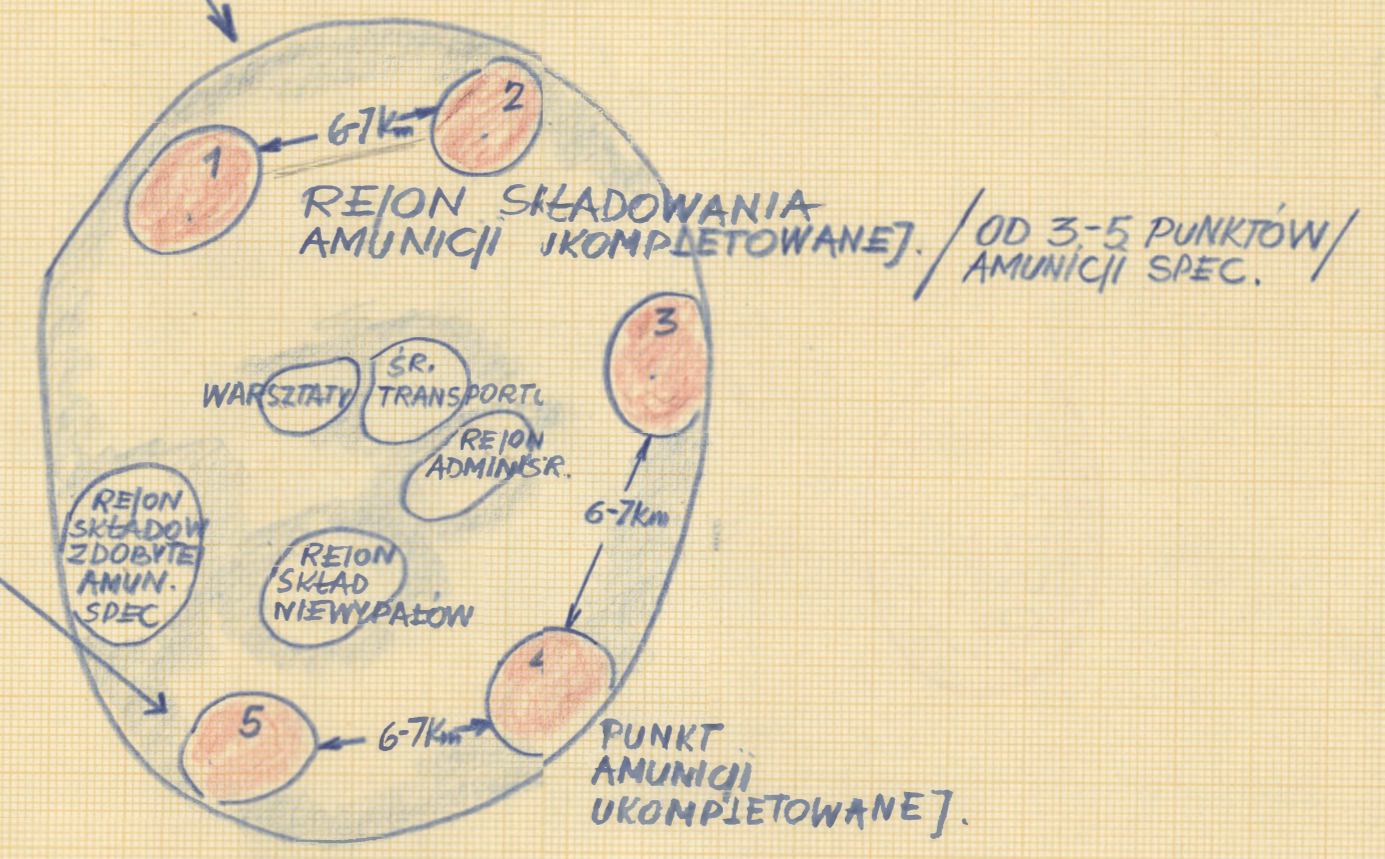 2
6-7km
1
REJON SKŁADOWANIA
AMUNICJI UKOMPLETOWANEJ.
/OD 3-5 PUNKTÓW/
AMUNICJI SPEC.
3
ŚR.
WARSZTATY
TRANSPORTU
REJON
ADMINISR.
REJON
SKŁADOW
ZDOBYTEJ
AMUN.
SPEC
6-7km
REJON
SKŁAD
NIEWYPAŁÓW
4
5
6-7km
PUNKT
AMUNICJI
UKOMPLETOWANEJ.